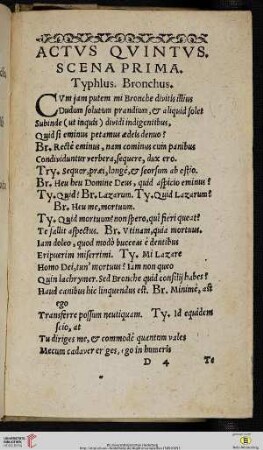 ACTVS QVINTVS.
SCENA PRIMA.
Typhlus. Bronchus.
CVm jam putem mi Bronche divitis illius
Dudum solutum prandium, & aliquid solet
Subinde (ut inquis) dividi indigentibus,
Quid si eminus petamus ædeis denuo?
Br. Rectè eminus, nam cominus cum panibus
Condividuntur verbera, sequere, dux ero.
Ty. Sequor, præi, longè, & seorsum ab ostio.
Br. Heu heu Domine Deus, quid aspicio eminus?
Ty. Quid? Br. Lazarum. Ty. Quid Lazarum?
Br. Heu me, mortuum.
Ty. Quid mortuum? non spero, quî fieri queat?
Te fallit aspectus. Br. Vtinam, quia mortuus.
Iam doleo, quod modò bucceas è dentibus
Eripuerim miserrimi. Ty. Mi Lazare
Homo Dei, tun' mortuus? iam non queo
Quin lachrymer. Sed Bronche quid consilij habes?
Haud canibus hic linquendus est. Br. Minimè, ast
ego
Transferre possum neutiquam. Ty. Id equidem
scio, at
Tu diriges me, & commodè quantum vales
Mecum cadaver eriges, ego in humeris
D 4 Te